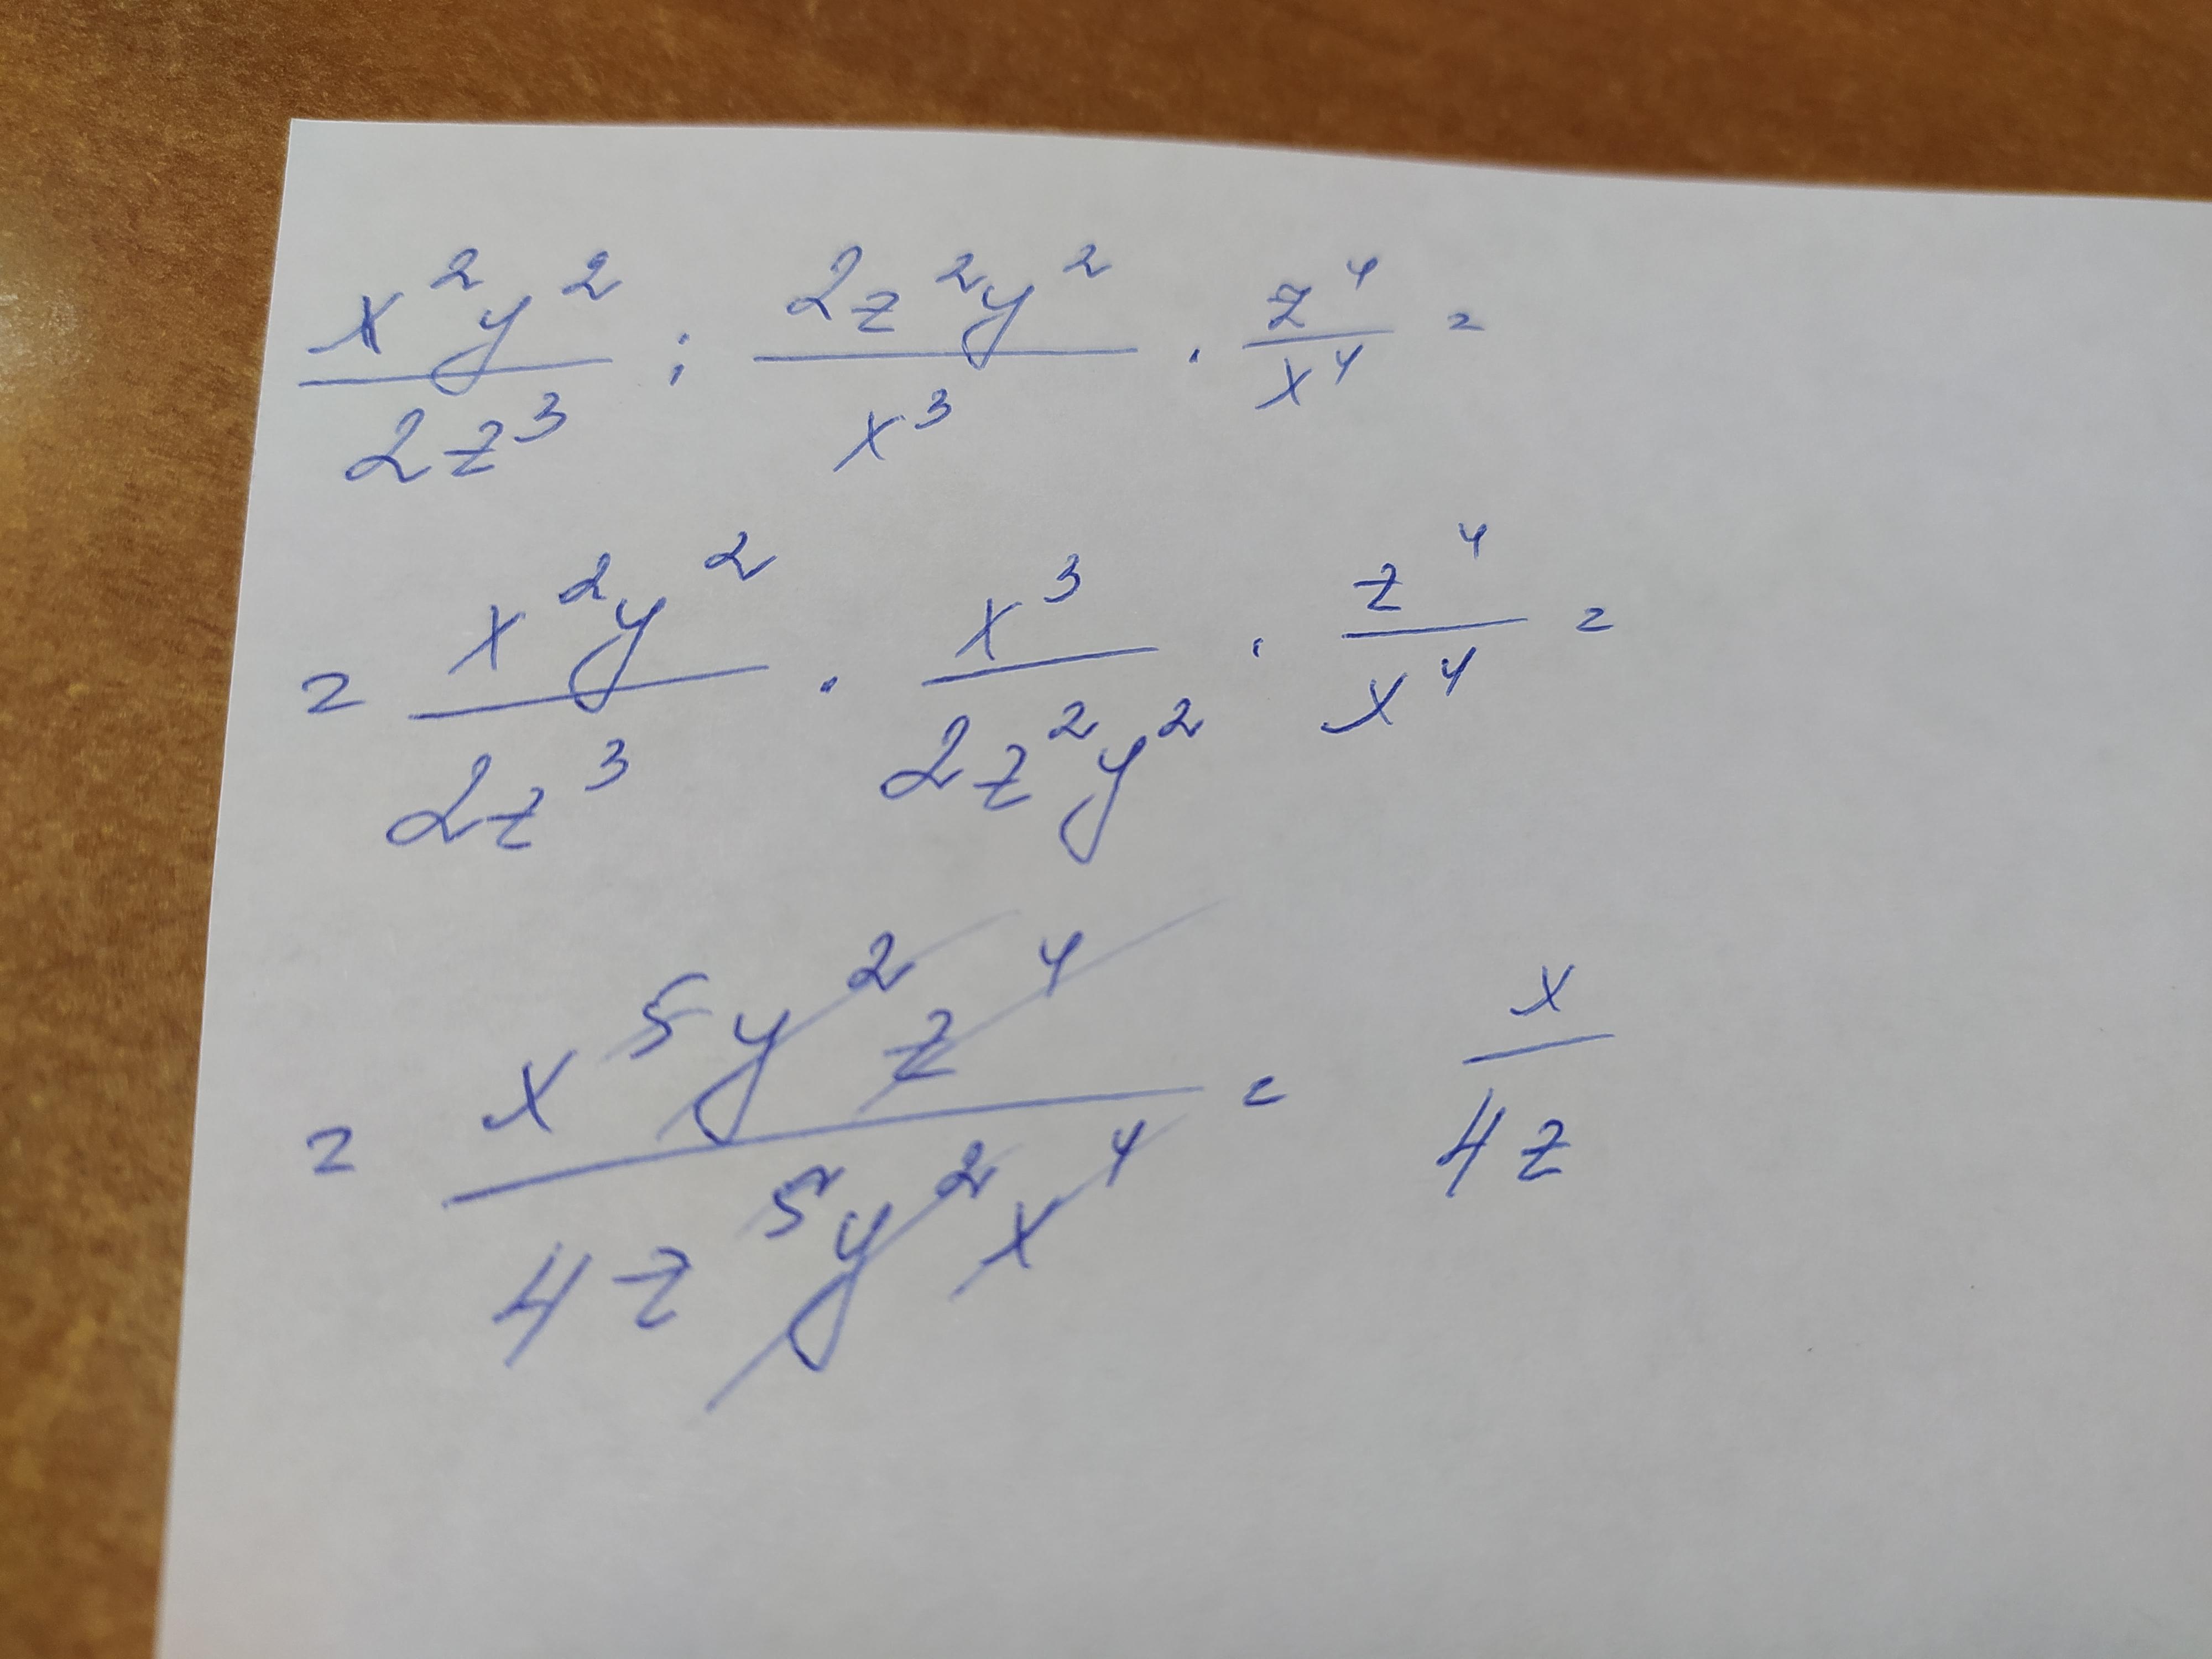 x²y²/2z³ : 2z²y²/x³ · z⁴/x⁴ =
= x²y²/2z³ · x³/2z²y² · z⁴/x⁴ =
= x⁵y²z⁴/4z⁵y²x⁴ = x/4z